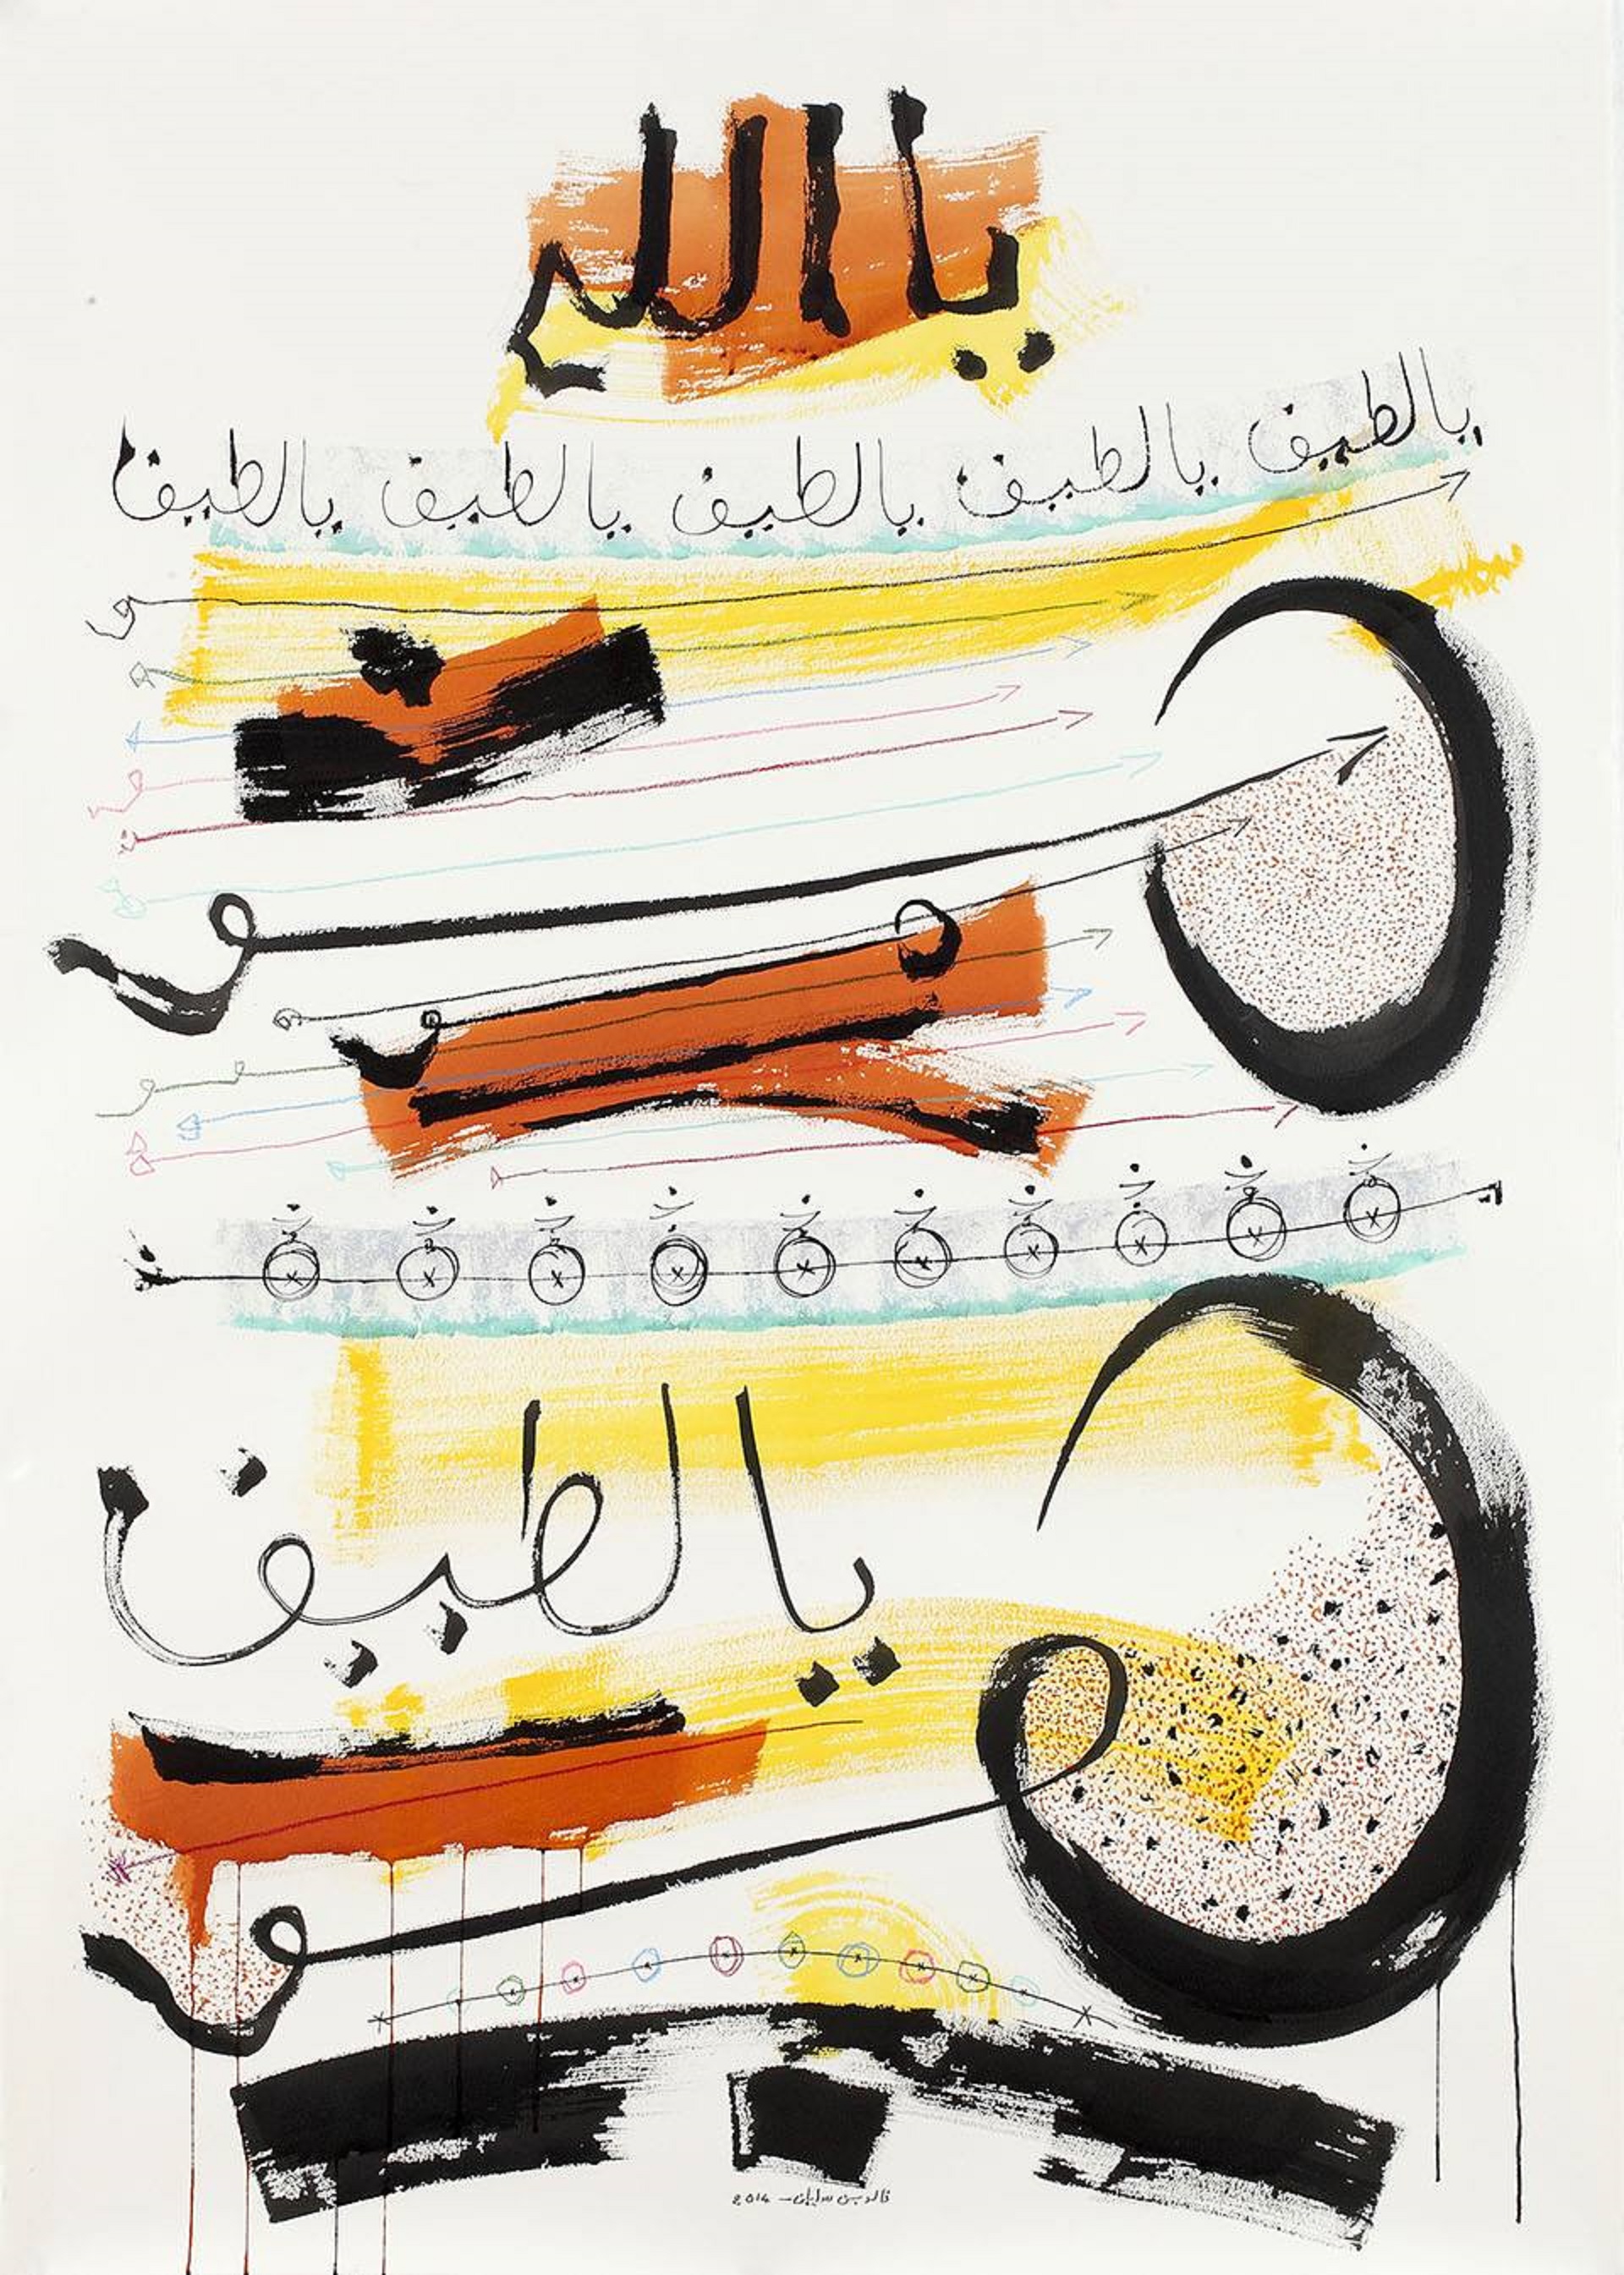 يا الله
يالطيف يالطيف يالطيف يالطيف يالطيف
يالطيف
خالد بن سليمان - 2014